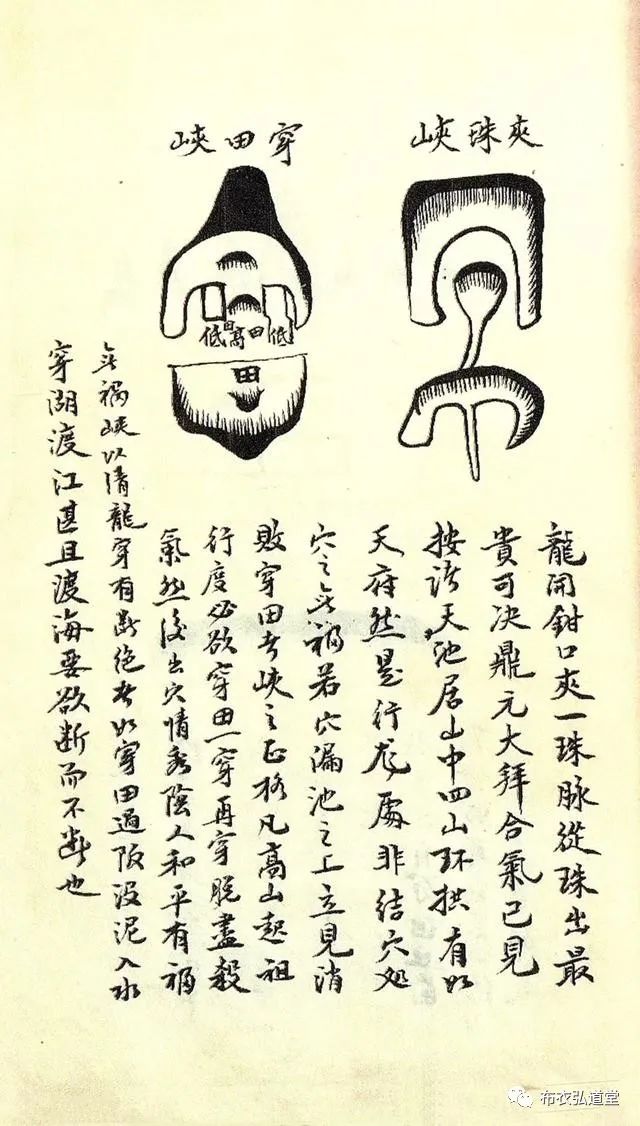 夾珠峽
龍開鉗口夾一珠脉從珠出最
貴可决鼎元大拜合氣已見
按諸天池居山中四山环拱有如
天府然是行龙處非结穴処
穴之無禍若穴漏池之上立見消
穿田峽
低田高田低
田
敗穿田者峽之正格凡高山起祖
行度必欲穿田一穿再穿脱盡殺
氣然後出穴情秀陰人和平有福
無禍峽以清龍穿有断絶者如穿田過阪没泥入水
穿湖渡江甚且渡海要欲断而不断也
布衣弘道堂